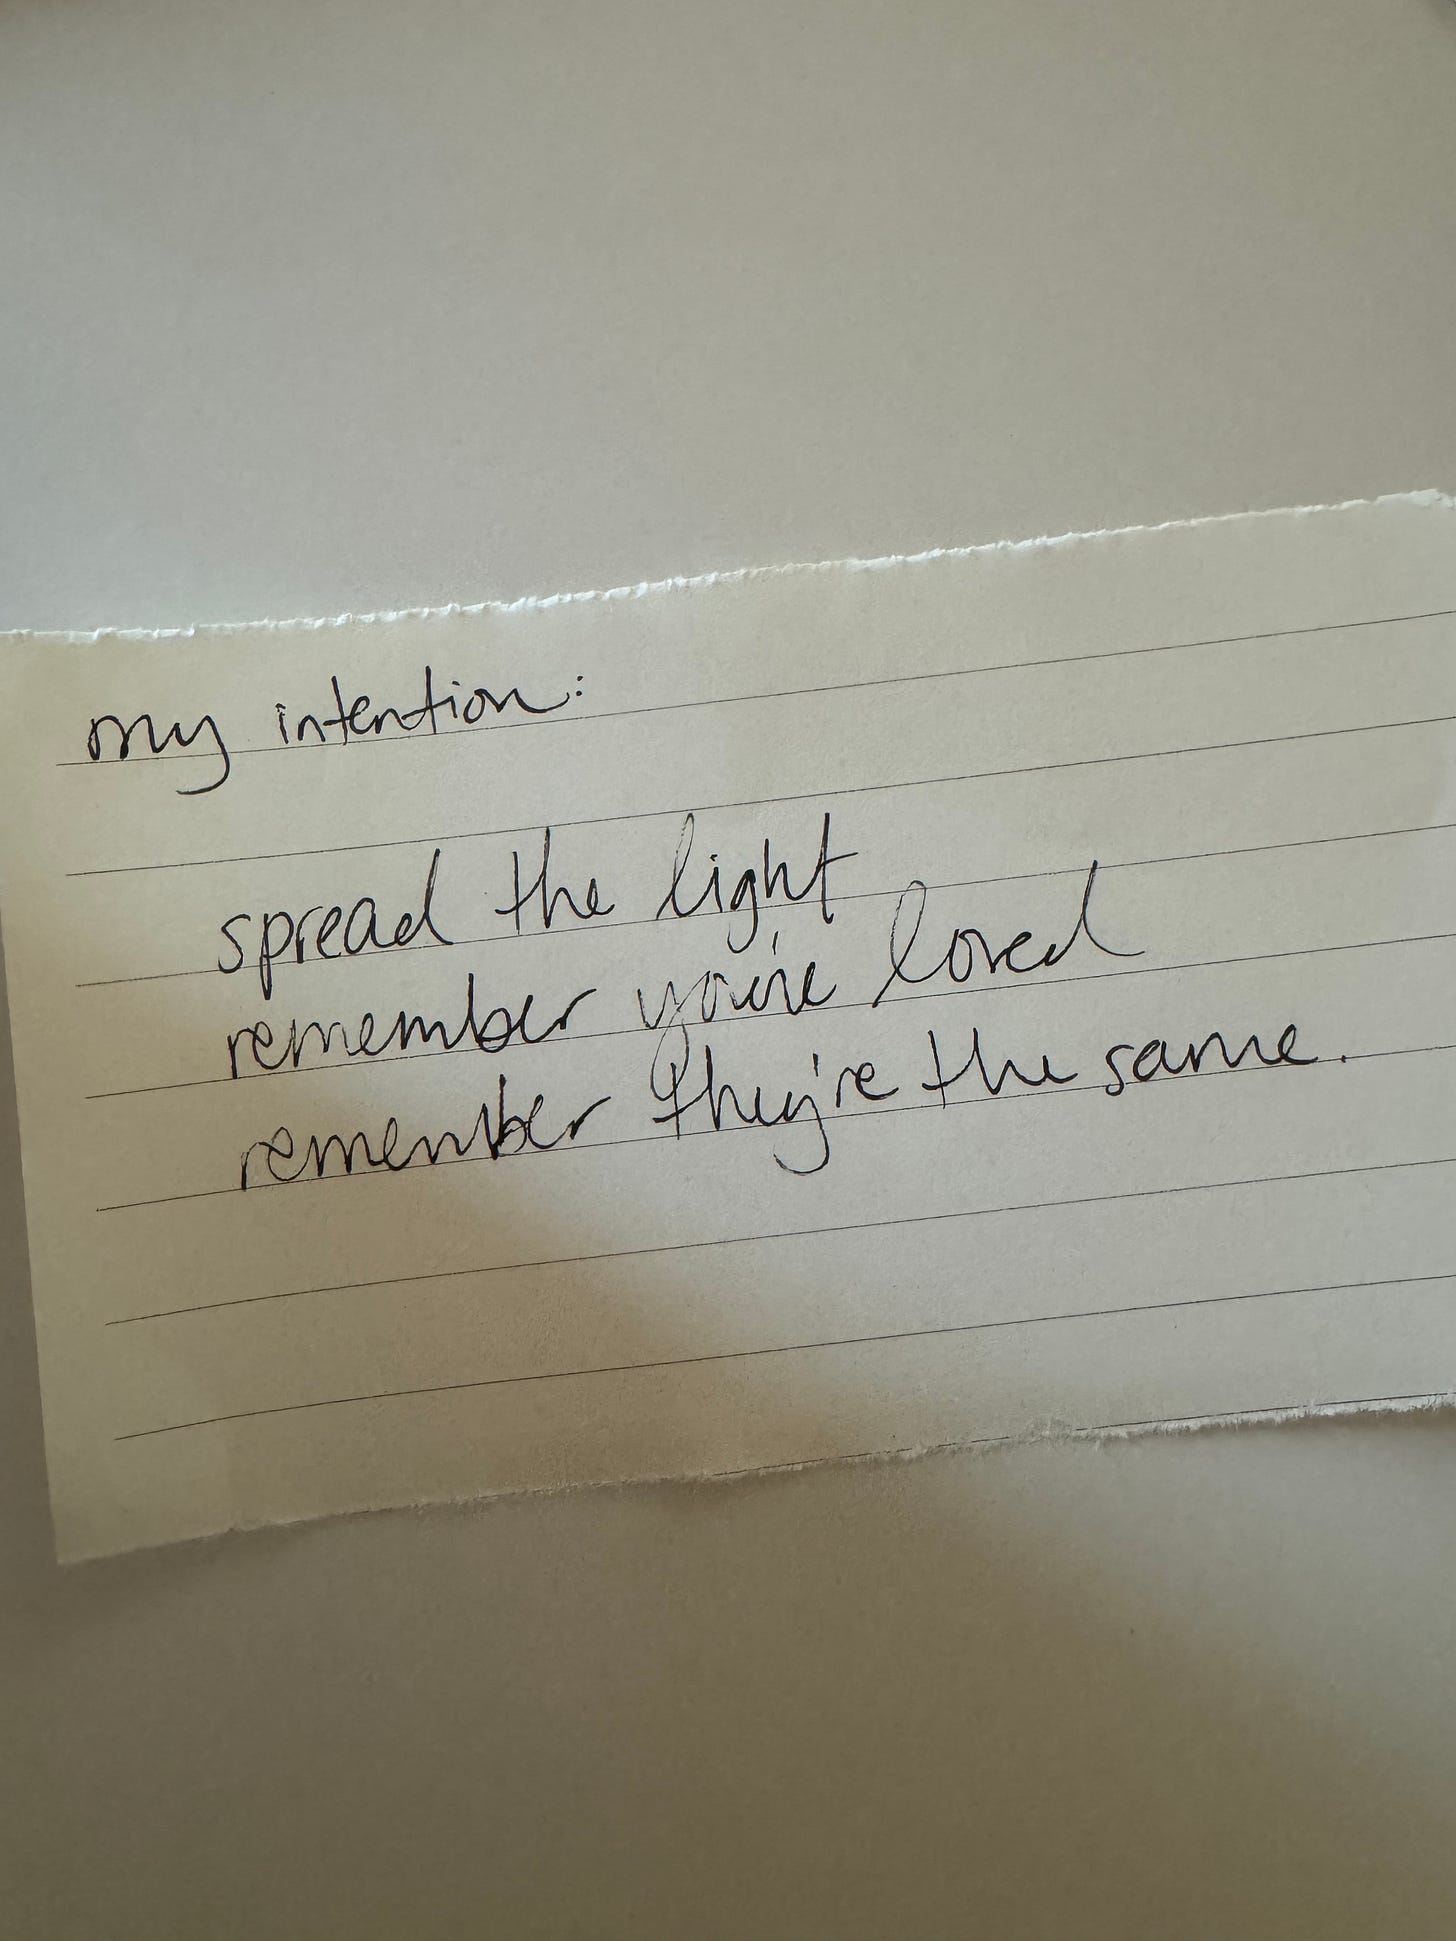 my intention:
spread the light
remember you're loved
remember they're the same.